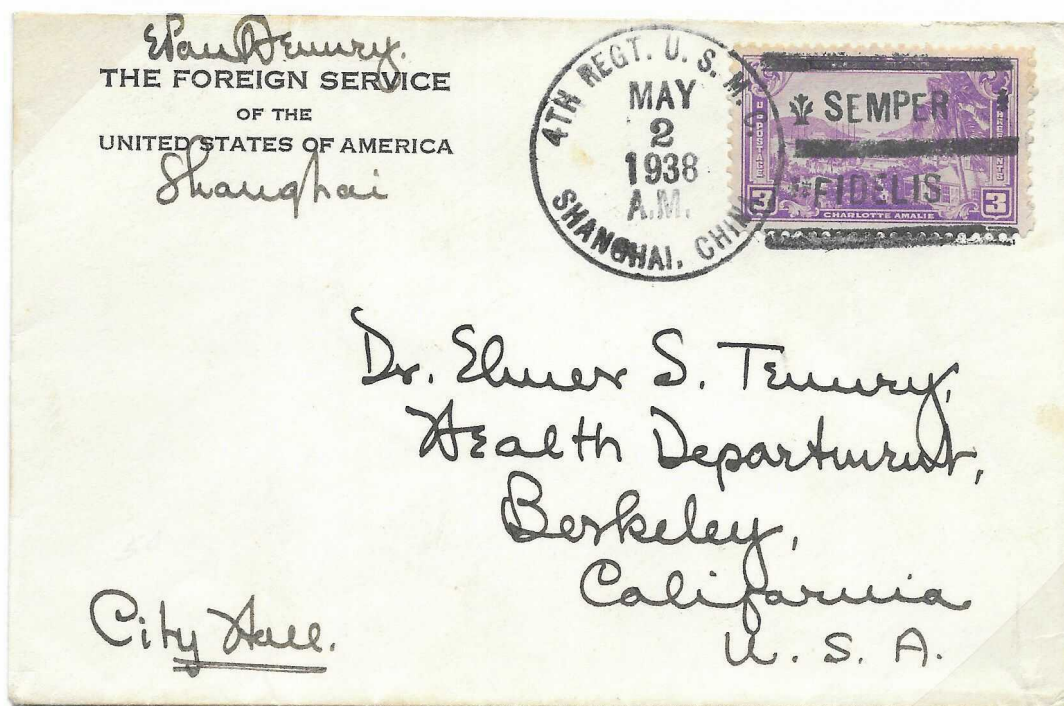 THE FOREIGN SERVICE
OF THE
UNITED STATES OF AMERICA
Shanghai
4TH REGT. U. S. M. C.
MAY
2
1938
A.M.
SHANGHAI, CHINA
SEMPER
FIDELIS
U S POSTAGE
THREE CENTS
3 3
CHARLOTTE AMALIE
Dr. Elmer S. Tenney,
Health Department,
Berkeley,
California
U. S. A.
City Hall.